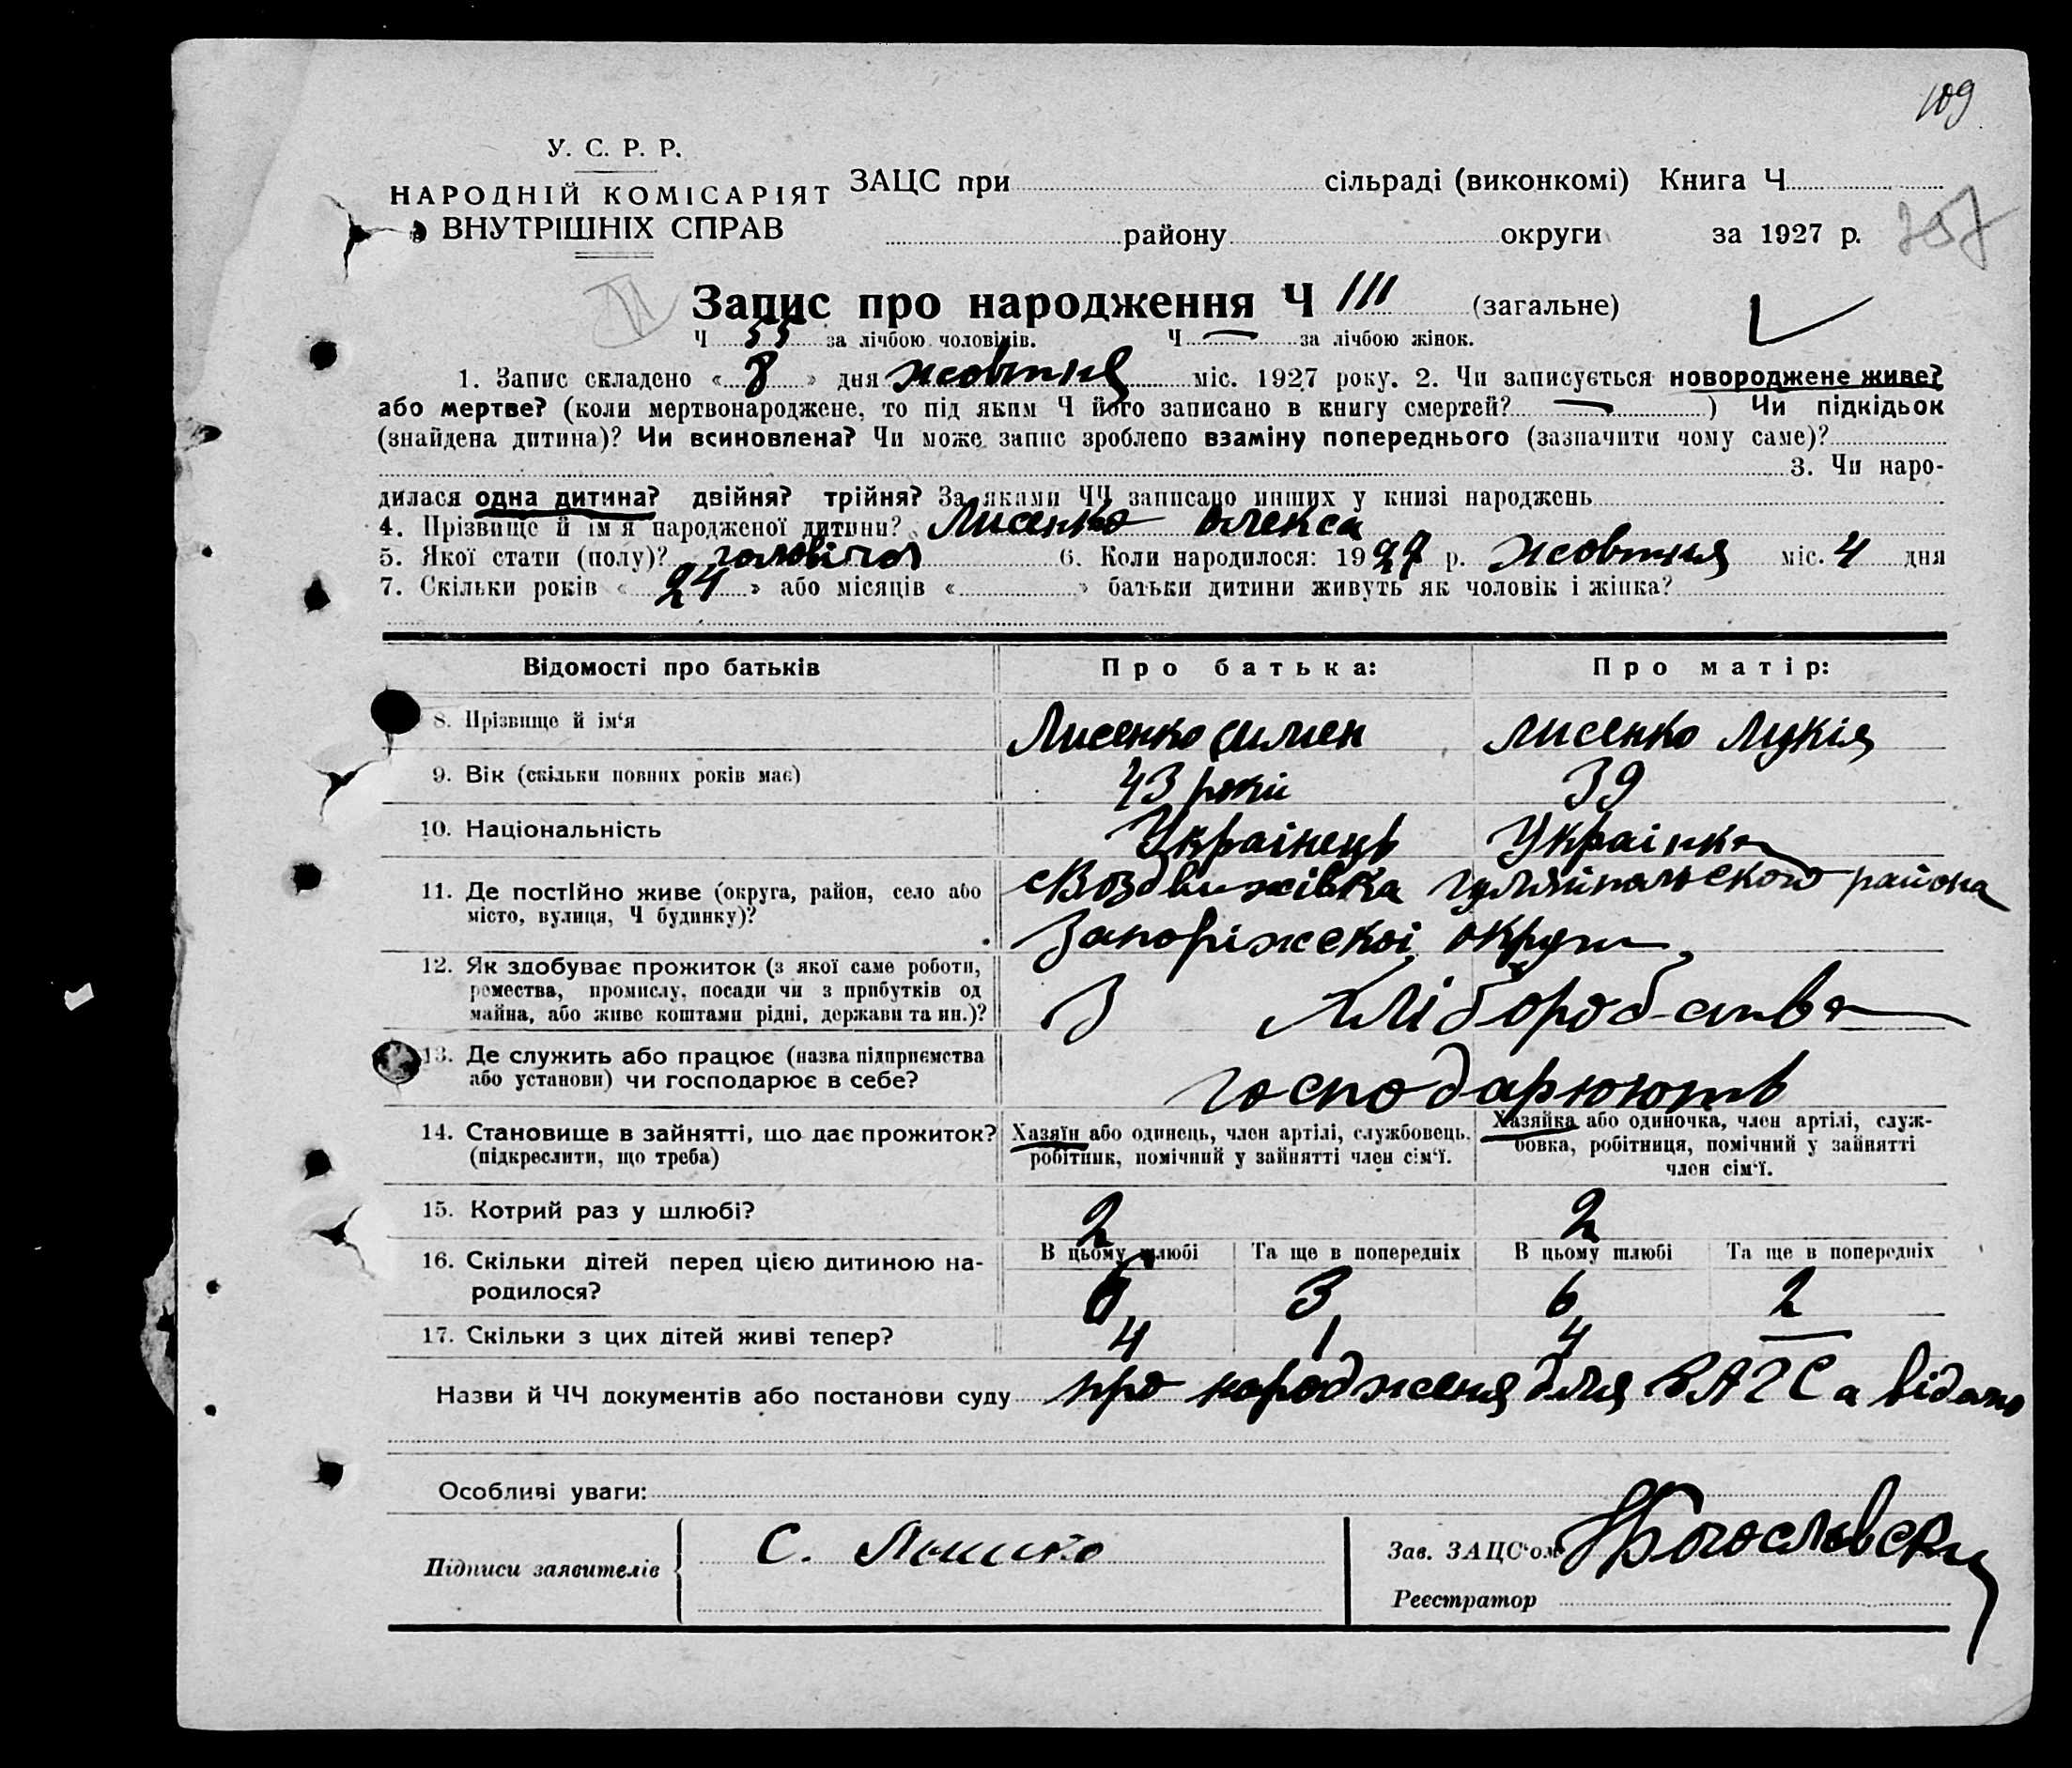 109
У. С. Р. Р.
НАРОДНІЙ КОМІСАРІЯТ
ВНУТРІШНІХ СПРАВ
ЗАЦС при сільраді (виконкомі) Книга Ч
району округи за 1927 р.
Запис про народження Ч 111 (загальне)
Ч 55 за лічбою чоловіків. Ч — за лічбою жінок.
1. Запис складено « 8 » дня жовтня міс. 1927 року. 2. Чи записується новороджене живе?
або мертве? (коли мертвонароджене, то під яким Ч його записано в книгу смертей? — ) Чи підкідьок
(знайдена дитина)? Чи всиновлена? Чи може запис зроблено взаміну попереднього (зазначити чому саме)?
3. Чи наро-
дилася одна дитина? двійня? трійня? За якими ЧЧ записано инших у книзі народжень
4. Прізвище й ім'я народженої дитини? Лисенко Олекса
5. Якої стати (полу)? чоловічої 6. Коли народилося: 1927 р. жовтня міс. 4 дня
7. Скільки років « 24 » або місяців « » батьки дитини живуть як чоловік і жінка?
Відомості про батьків Про батька: Про матір:
8. Прізвище й ім'я Лисенко Симен Лисенко Лукія
9. Вік (скільки повних років має) 43 роки 39
10. Національність Українець Українка
11. Де постійно живе (округа, район, село або
місто, вулиця, Ч будинку)? Воздвижівка гуляйпольского района
Запоріжскоі округи
12. Як здобуває прожиток (з якої саме роботи,
ремества, промислу, посади чи з прибутків од
майна, або живе коштами рідні, держави та ин.)? З Хліборобства
13. Де служить або працює (назва підприємства
або установи) чи господарює в себе? господарюють
14. Становище в зайнятті, що дає прожиток?
(підкреслити, що треба)
Хазяїн або одинець, член артілі, службовець,
робітник, помічний у зайнятті член сім'ї.
Хазяйка або одиночка, член артілі, служ-
бовка, робітниця, помічний у зайнятті
член сім'ї.
15. Котрий раз у шлюбі? 2 2
В цьому шлюбі Та ще в попередніх В цьому шлюбі Та ще в попередніх
16. Скільки дітей перед цією дитиною на-
родилося? 6 3 6 2
17. Скільки з цих дітей живі тепер? 4 1 4 —
Назви й ЧЧ документів або постанови суду про народженя для ЗАГСа відано
Особливі уваги:
Підписи заявителів С.
Зав. ЗАЦС'ом Богословски
Реєстратор